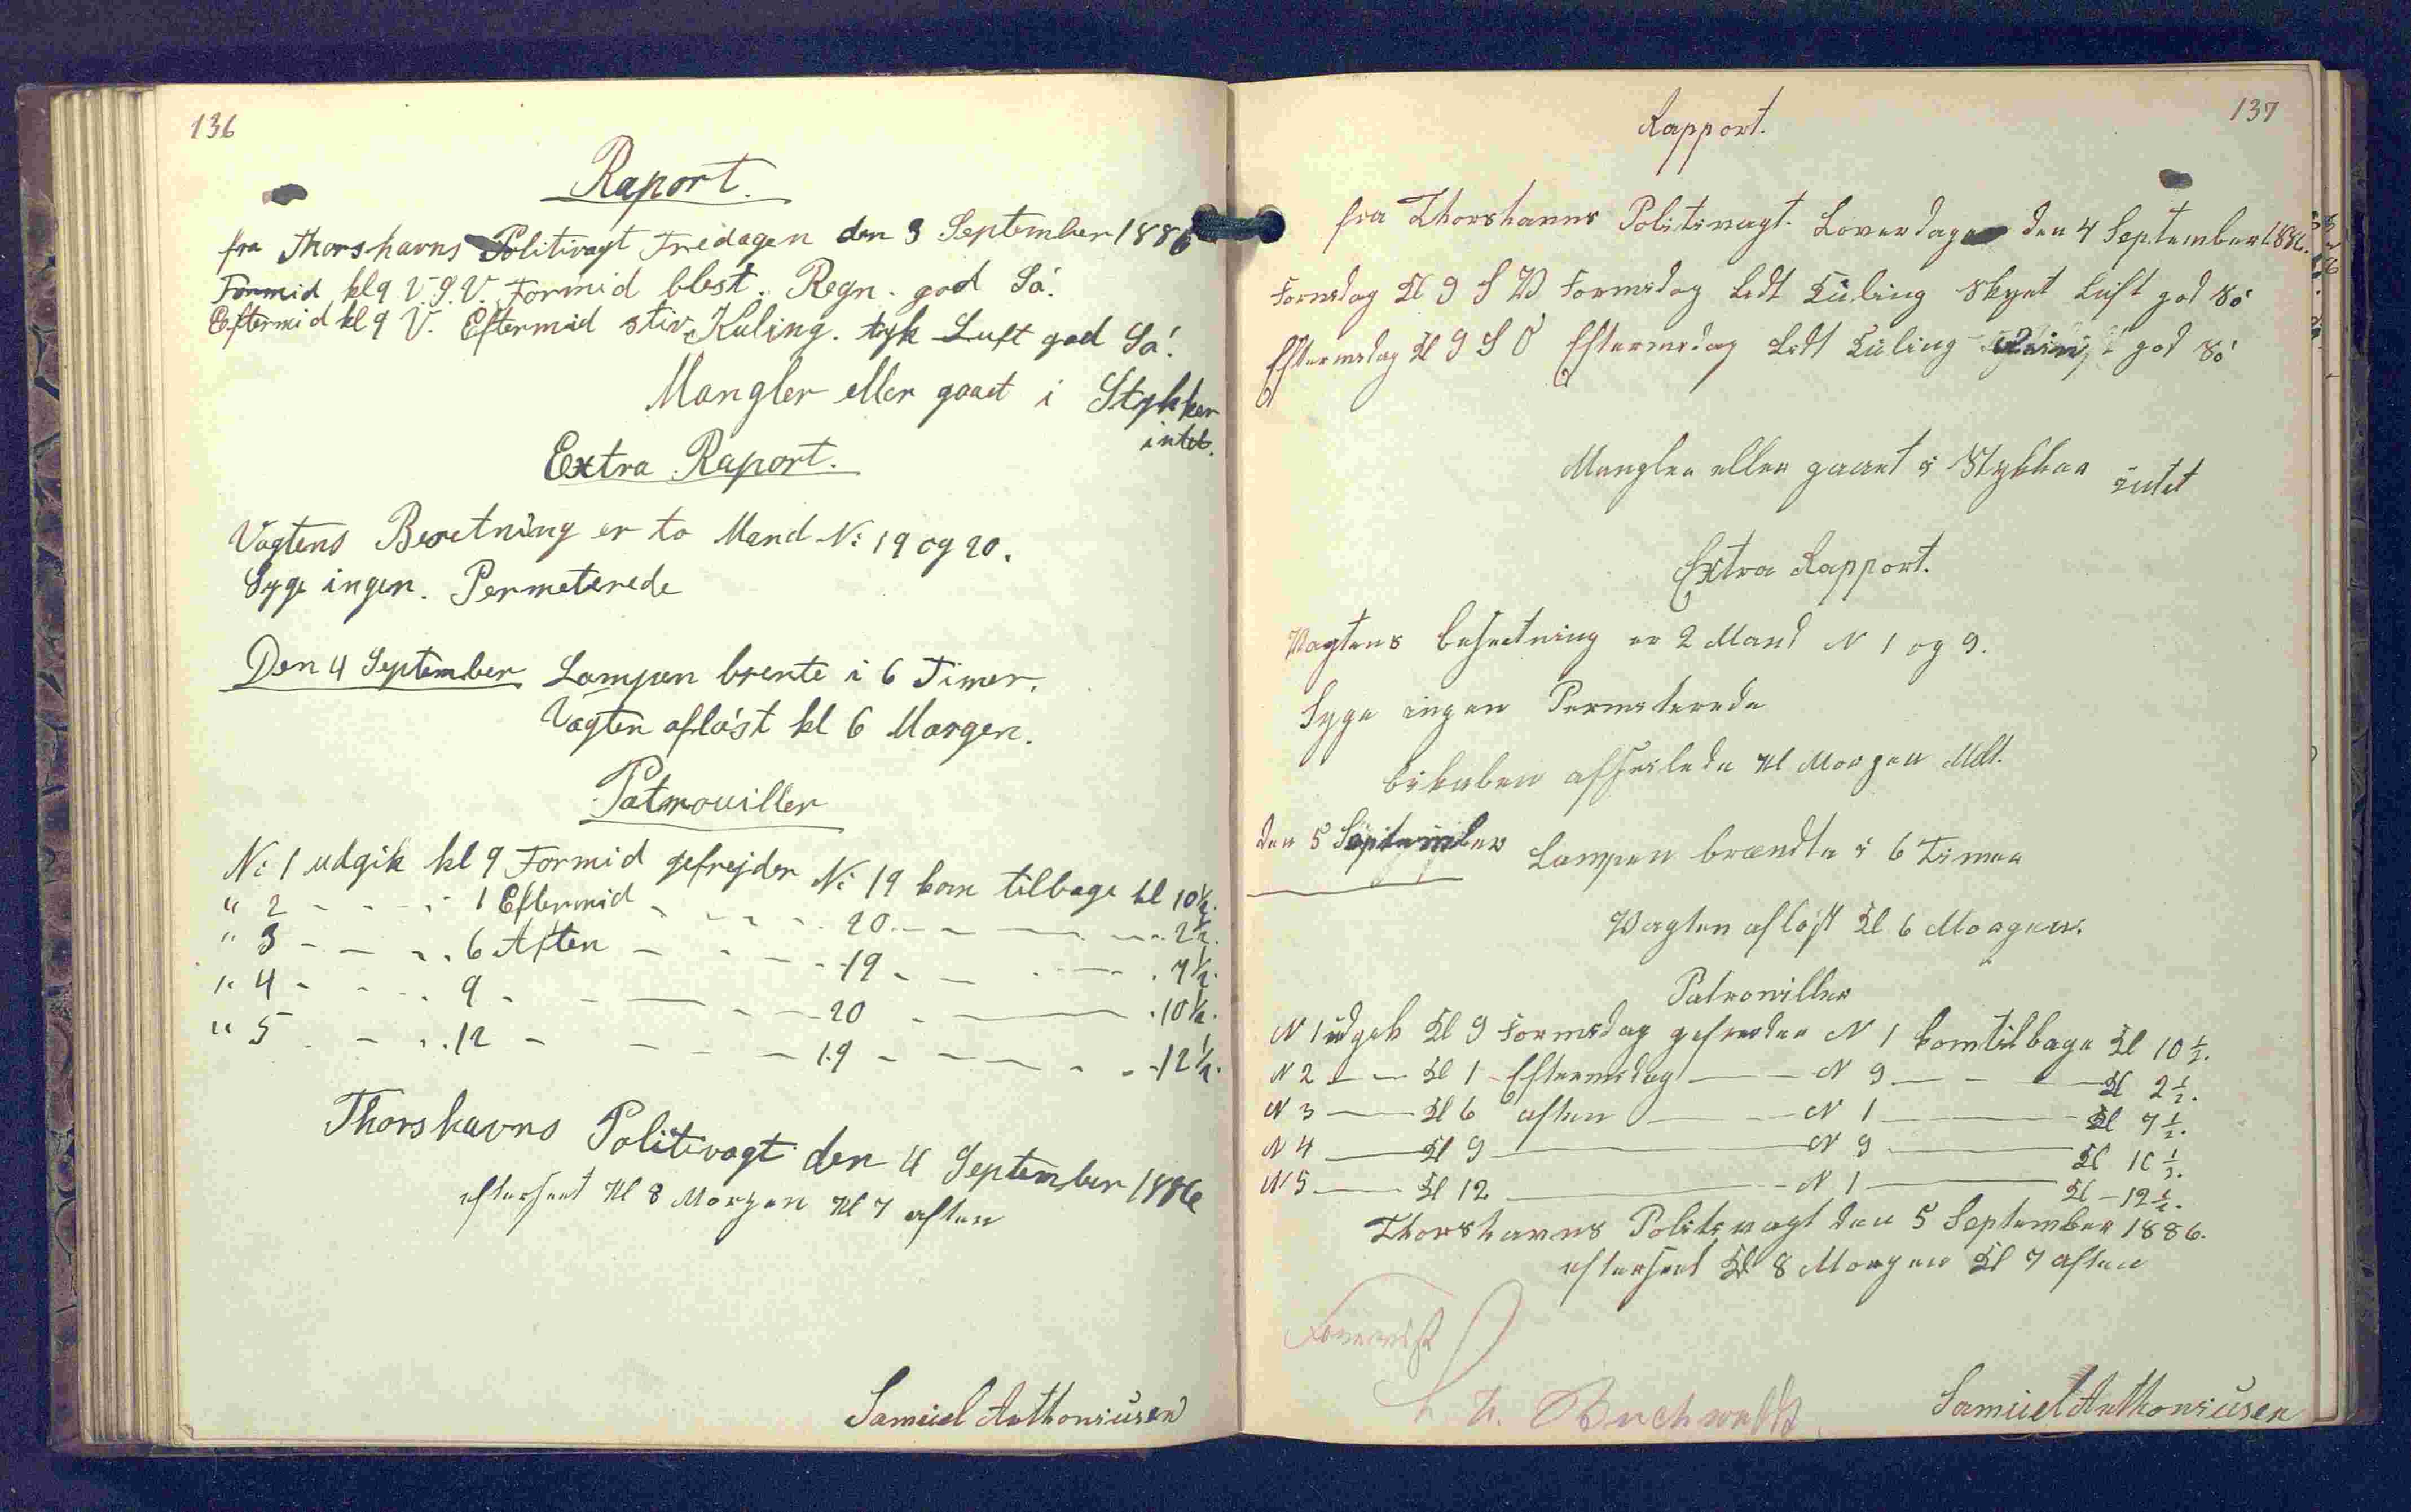 136
Raport.
fra Thorshavns Politivagt Fredagen den 3 September 1886
Formid kl 9 V.S.V. Formid blest. Regn. god Sö.
Eftermid kl 9 V. Eftermid stiv Kuling. tyk Luft god Sö.
Mangler eller gaaet i Stykker
intet.
Extra Raport.
Vagtens Besetning er to Mand N: 19 og 20.
Syge ingen. Permeterede
Den 4 September Lampen brente i 6 Timer.
Vagten afløst kl 6 Morgen.
Patrouiller
N: 1 udgik kl 9 Formid gefrejder N: 19 kom tilbage kl 10 1/2.
" 2 - - - - 1 Eftermid - - - - 20 - - - - 2 1/2.
" 3 - - - - 6 Aften - - - - 19 - - - - 7 1/2.
" 4 - - - - 9 - - - - 20 - - - - 10 1/2.
" 5 - - - - 12 - - - - 19 - - - - 12 1/2.
Thorshavns Politivagt den 4 September 1886
efterseet Kl 8 Morgen Kl 7 aften
Samüel Anthoniüsen
137
Rapport.
fra Thorshavns Politivagt. Loverdagen den 4 September 1886.
Formidag Kl 9 S V Formidag Lidt Kuling Skyet Luft god Sö
Eftermidag Kl 9 S O Eftermidag Lidt Kuling god Sö
Mangler eller gaaet i Stykker intet
Extra Rapport.
Vagtens besætning er 2 Mand N 1 og 9.
Syge ingen Permiterede
afseilede Kl Morgen
den 5 September Lampen brændte i 6 Timer
Vagten afløst Kl 6 Morgen.
Patrouiller
N 1 udgek Kl 9 Formidag gefreider N 1 kom tilbage Kl 10 1/2.
N 2 — — Kl 1 Eftermidag — — N 9 — — — Kl 2 1/2.
N 3 — — Kl 6 aften — — N 1 — — Kl 7 1/2.
N 4 — — Kl 9 — — N 9 — — Kl 10 1/2.
N 5 — — Kl 12 — — N 1 — — Kl - 12 1/2.
Thorshavns Politivagt den 5 September 1886.
efterseet Kl 8 Morgen Kl 7 aften
Buchwaldt
Samüel Anthoniüsen